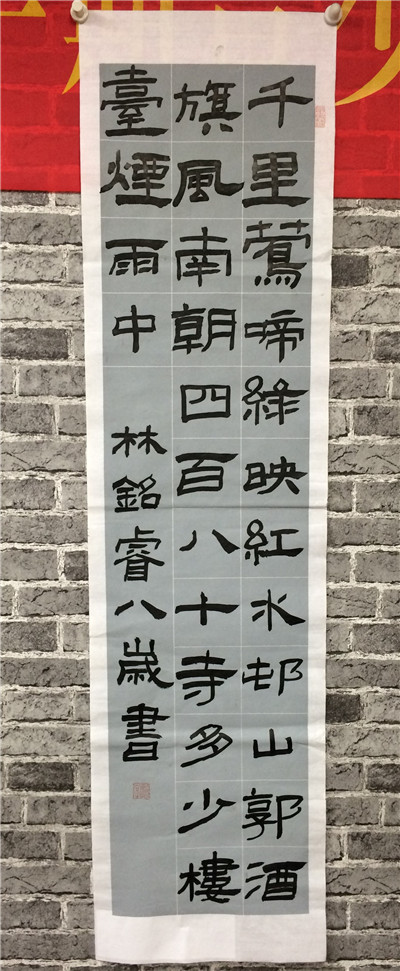 千里鶯啼綠映紅水邨山郭酒
旗風南朝四百八十寺多少樓
臺煙雨中
林銘睿八歲書